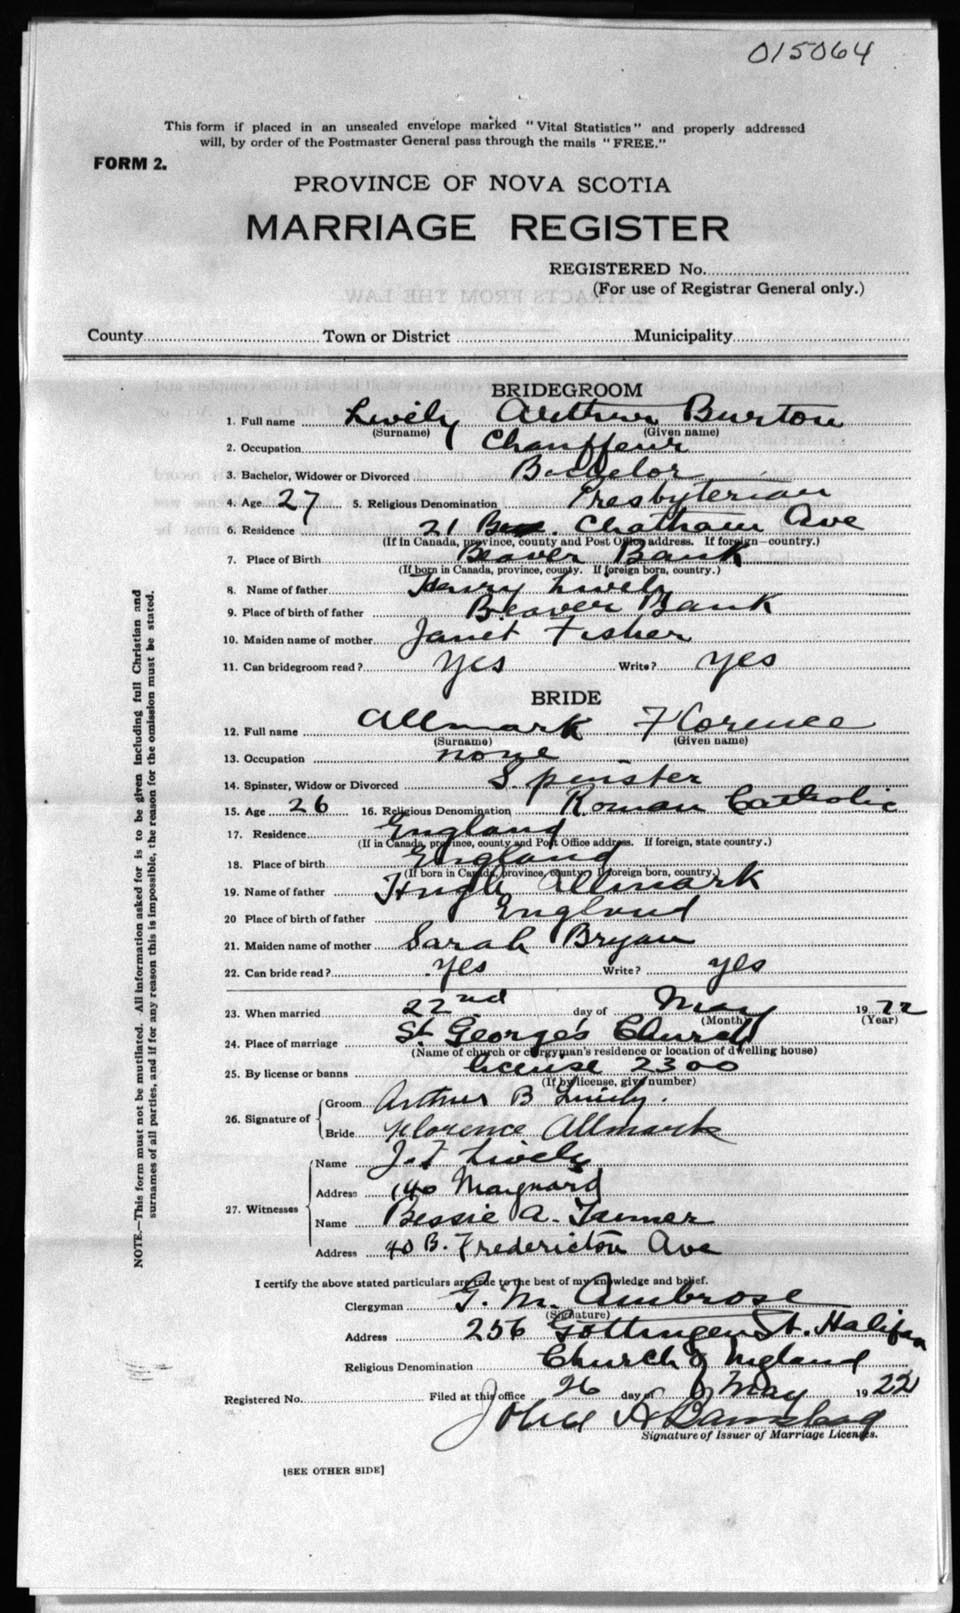 015064
This form if placed in an unsealed envelope marked "Vital Statistics" and properly addressed
will, by order of the Postmaster General pass through the mails "FREE."
FORM 2.
PROVINCE OF NOVA SCOTIA
MARRIAGE REGISTER
REGISTERED No.
(For use of Registrar General only.)
County Town or District Municipality
BRIDEGROOM
1. Full name Lively Arthur Burton
(Surname) (Given name)
2. Occupation Chauffeur
3. Bachelor, Widower or Divorced Bachelor
4. Age 27 5. Religious Denomination Presbyterian
6. Residence 21 Chatham Ave
(If in Canada, province, county and Post Office address. If foreign—country.)
7. Place of Birth Beaver Bank
(If born in Canada, province, county. If foreign born, country.)
8. Name of father Henry Lively
9. Place of birth of father Beaver Bank
10. Maiden name of mother Janet Fisher
11. Can bridegroom read? Yes Write? Yes
BRIDE
12. Full name Allmark Florence
(Surname) (Given name)
13. Occupation none
14. Spinster, Widow or Divorced Spinster
15. Age 26 16. Religious Denomination Roman Catholic
17. Residence England
(If in Canada, province, county and Post Office address. If foreign, state country.)
18. Place of birth England
(If born in Canada, province, county; If foreign born, country.)
19. Name of father Hugh Allmark
20 Place of birth of father England
21. Maiden name of mother Sarah Bryan
22. Can bride read? Yes Write? yes
23. When married 22nd day of May 1922
(Month) (Year)
24. Place of marriage St George's Church
(Name of church or clergyman's residence or location of dwelling house)
25. By license or banns license 2300
(If by license, give number)
26. Signature of Groom Arthur B Lively.
Bride Florence Allmark
27. Witnesses Name J. Lively
Address 140 Maynard
Name Bessie A. Tanner
Address 40 B. Fredericton Ave
I certify the above stated particulars are true to the best of my knowledge and belief.
Clergyman G. M. Ambrose
(Signature)
Address 256 Gottingen St. Halifax
Religious Denomination Church of England
Registered No. Filed at this office 26 day of May 1922
John A
Signature of Issuer of Marriage Licenses.
[SEE OTHER SIDE]
NOTE.—This form must not be mutilated. All information asked for is to be given including full Christian and
surnames of all parties, and if for any reason this is impossible, the reason for the omission must be stated.